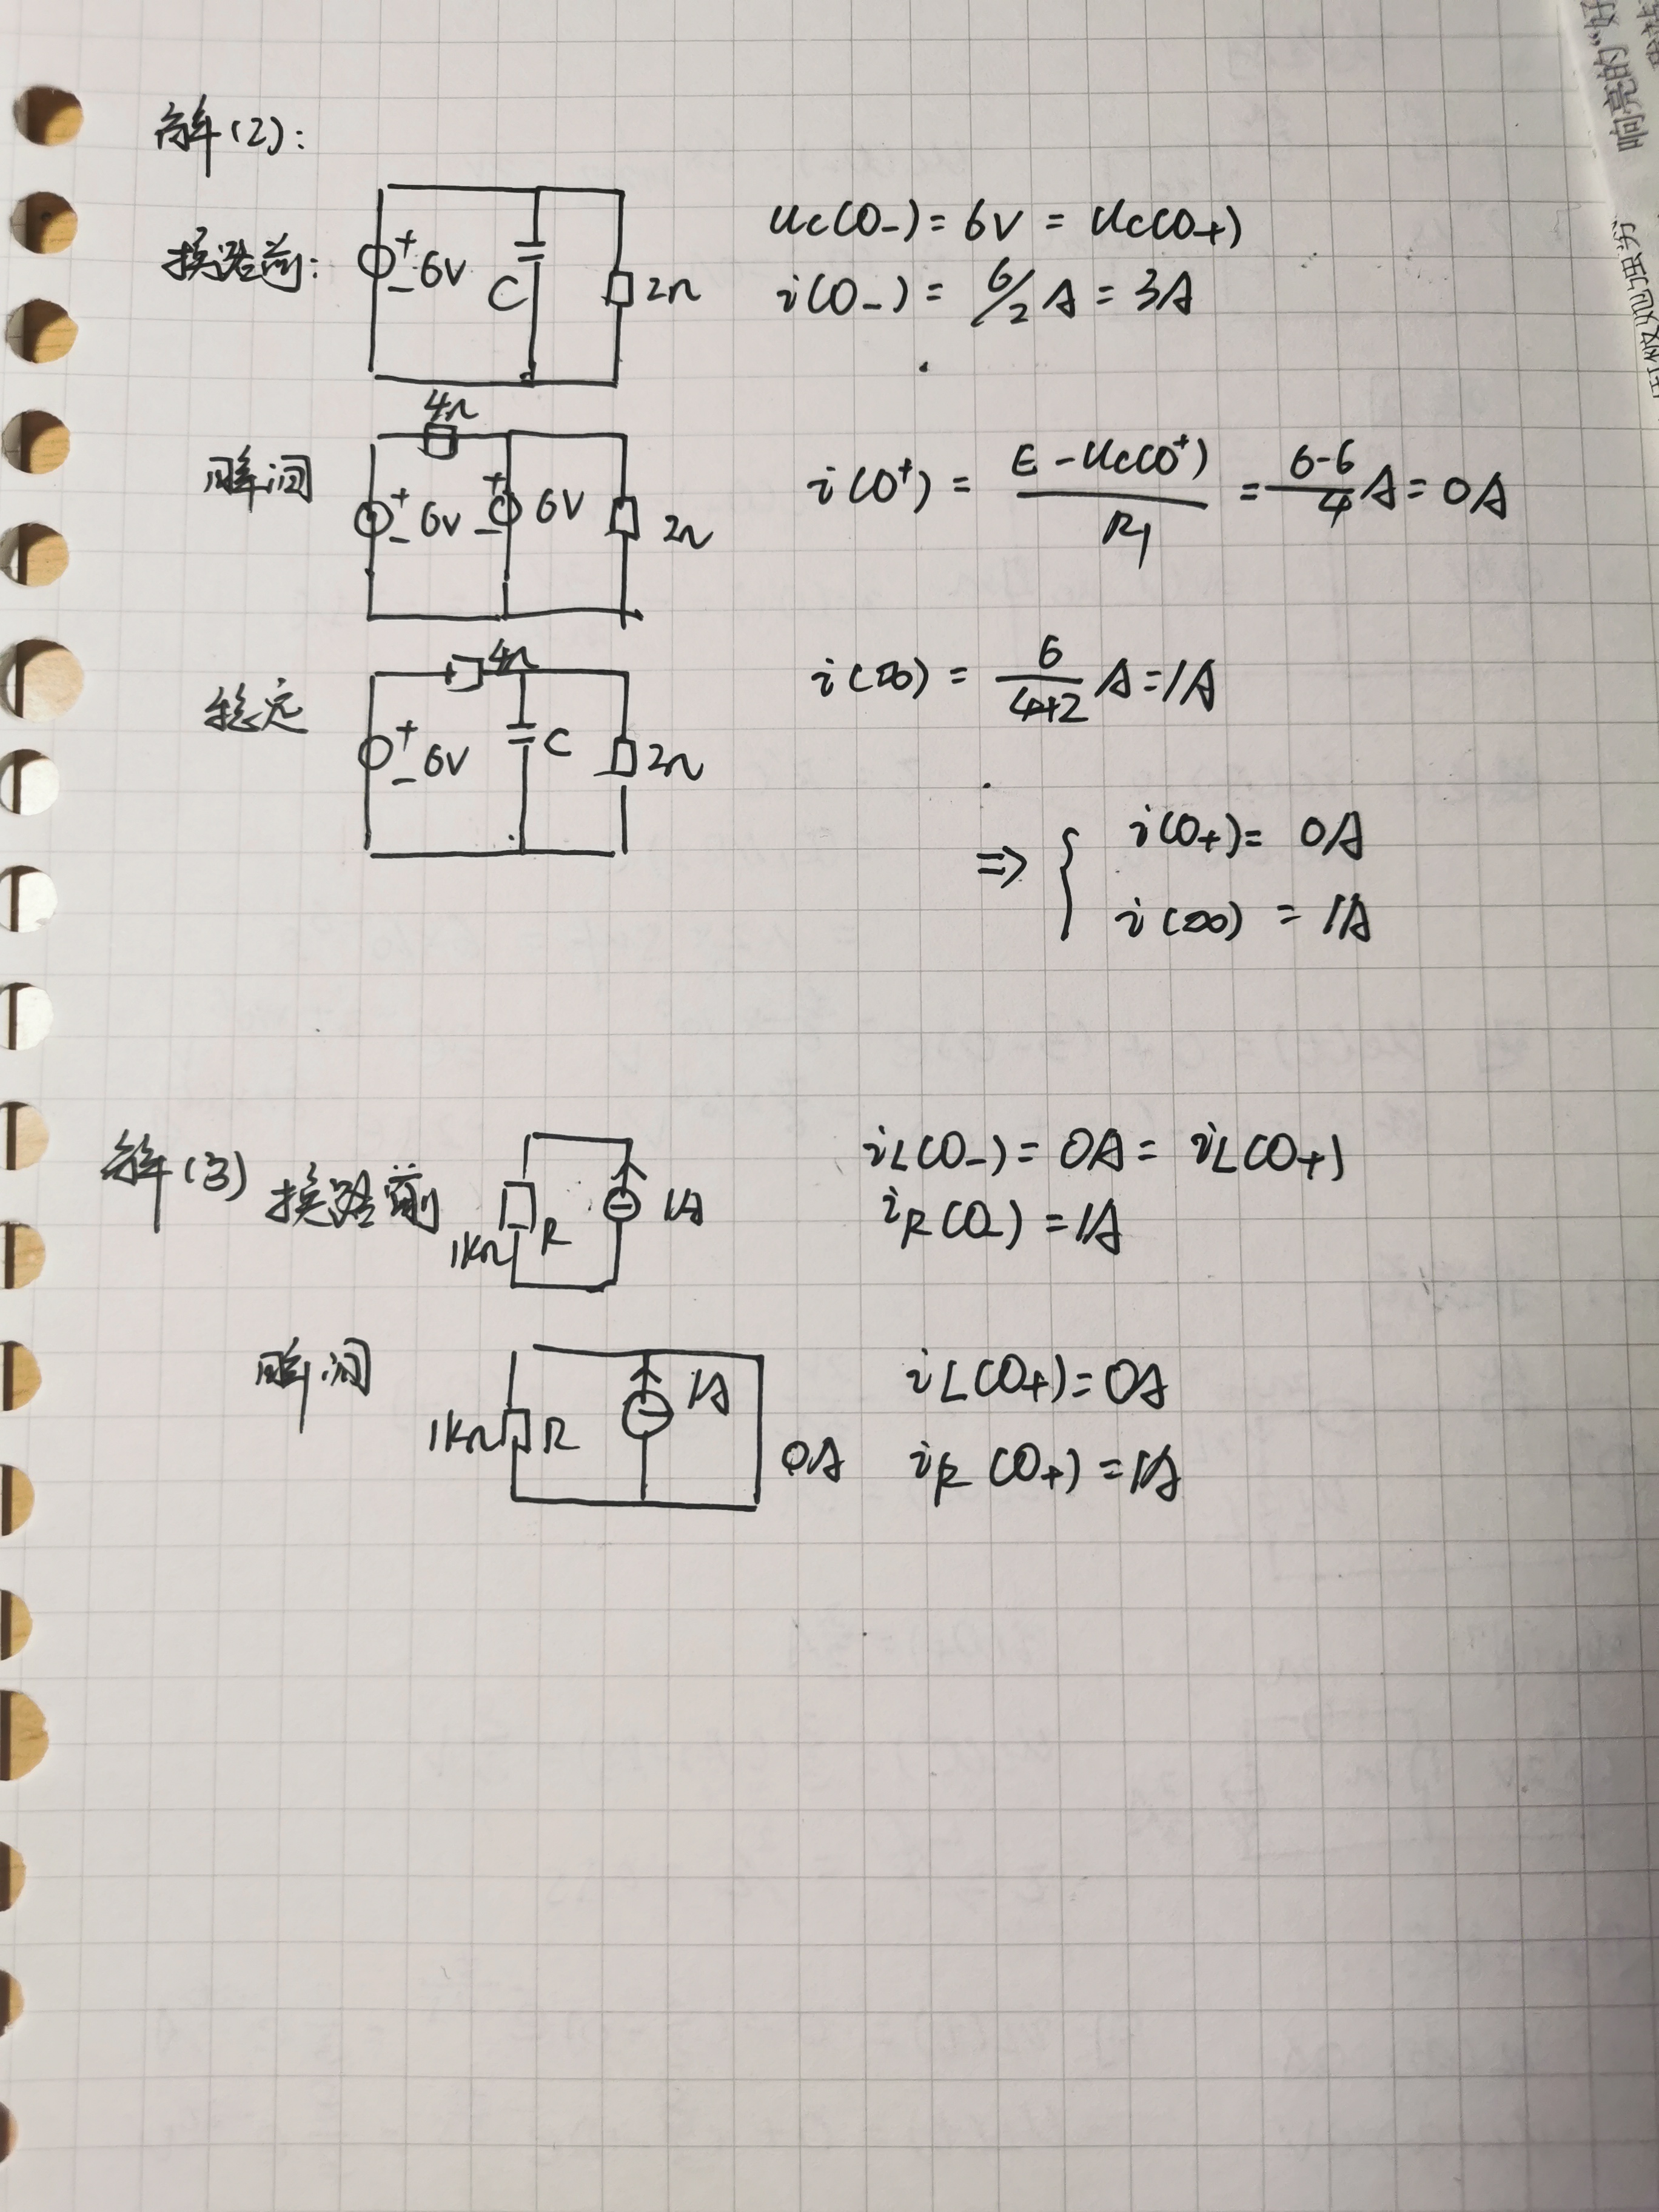 解(2):
换路前: + - 6V C 2Ω
uc(0-) = 6V = uc(0+)
i(0-) = 6/2 A = 3A
4Ω
瞬间 + - 6V + - 6V 2Ω
i(0+) = (E - uc(0+))/R1 = (6-6)/4 A = 0A
4Ω
稳定 + - 6V C 2Ω
i(∞) = 6/(4+2) A = 1A
⇒ { i(0+) = 0A
i(∞) = 1A
解(3) 换路前 1kΩ R 1A
iL(0-) = 0A = iL(0+)
iR(0-) = 1A
瞬间 1kΩ R 1A 0A
iL(0+) = 0A
iR(0+) = 1A
响亮的“好